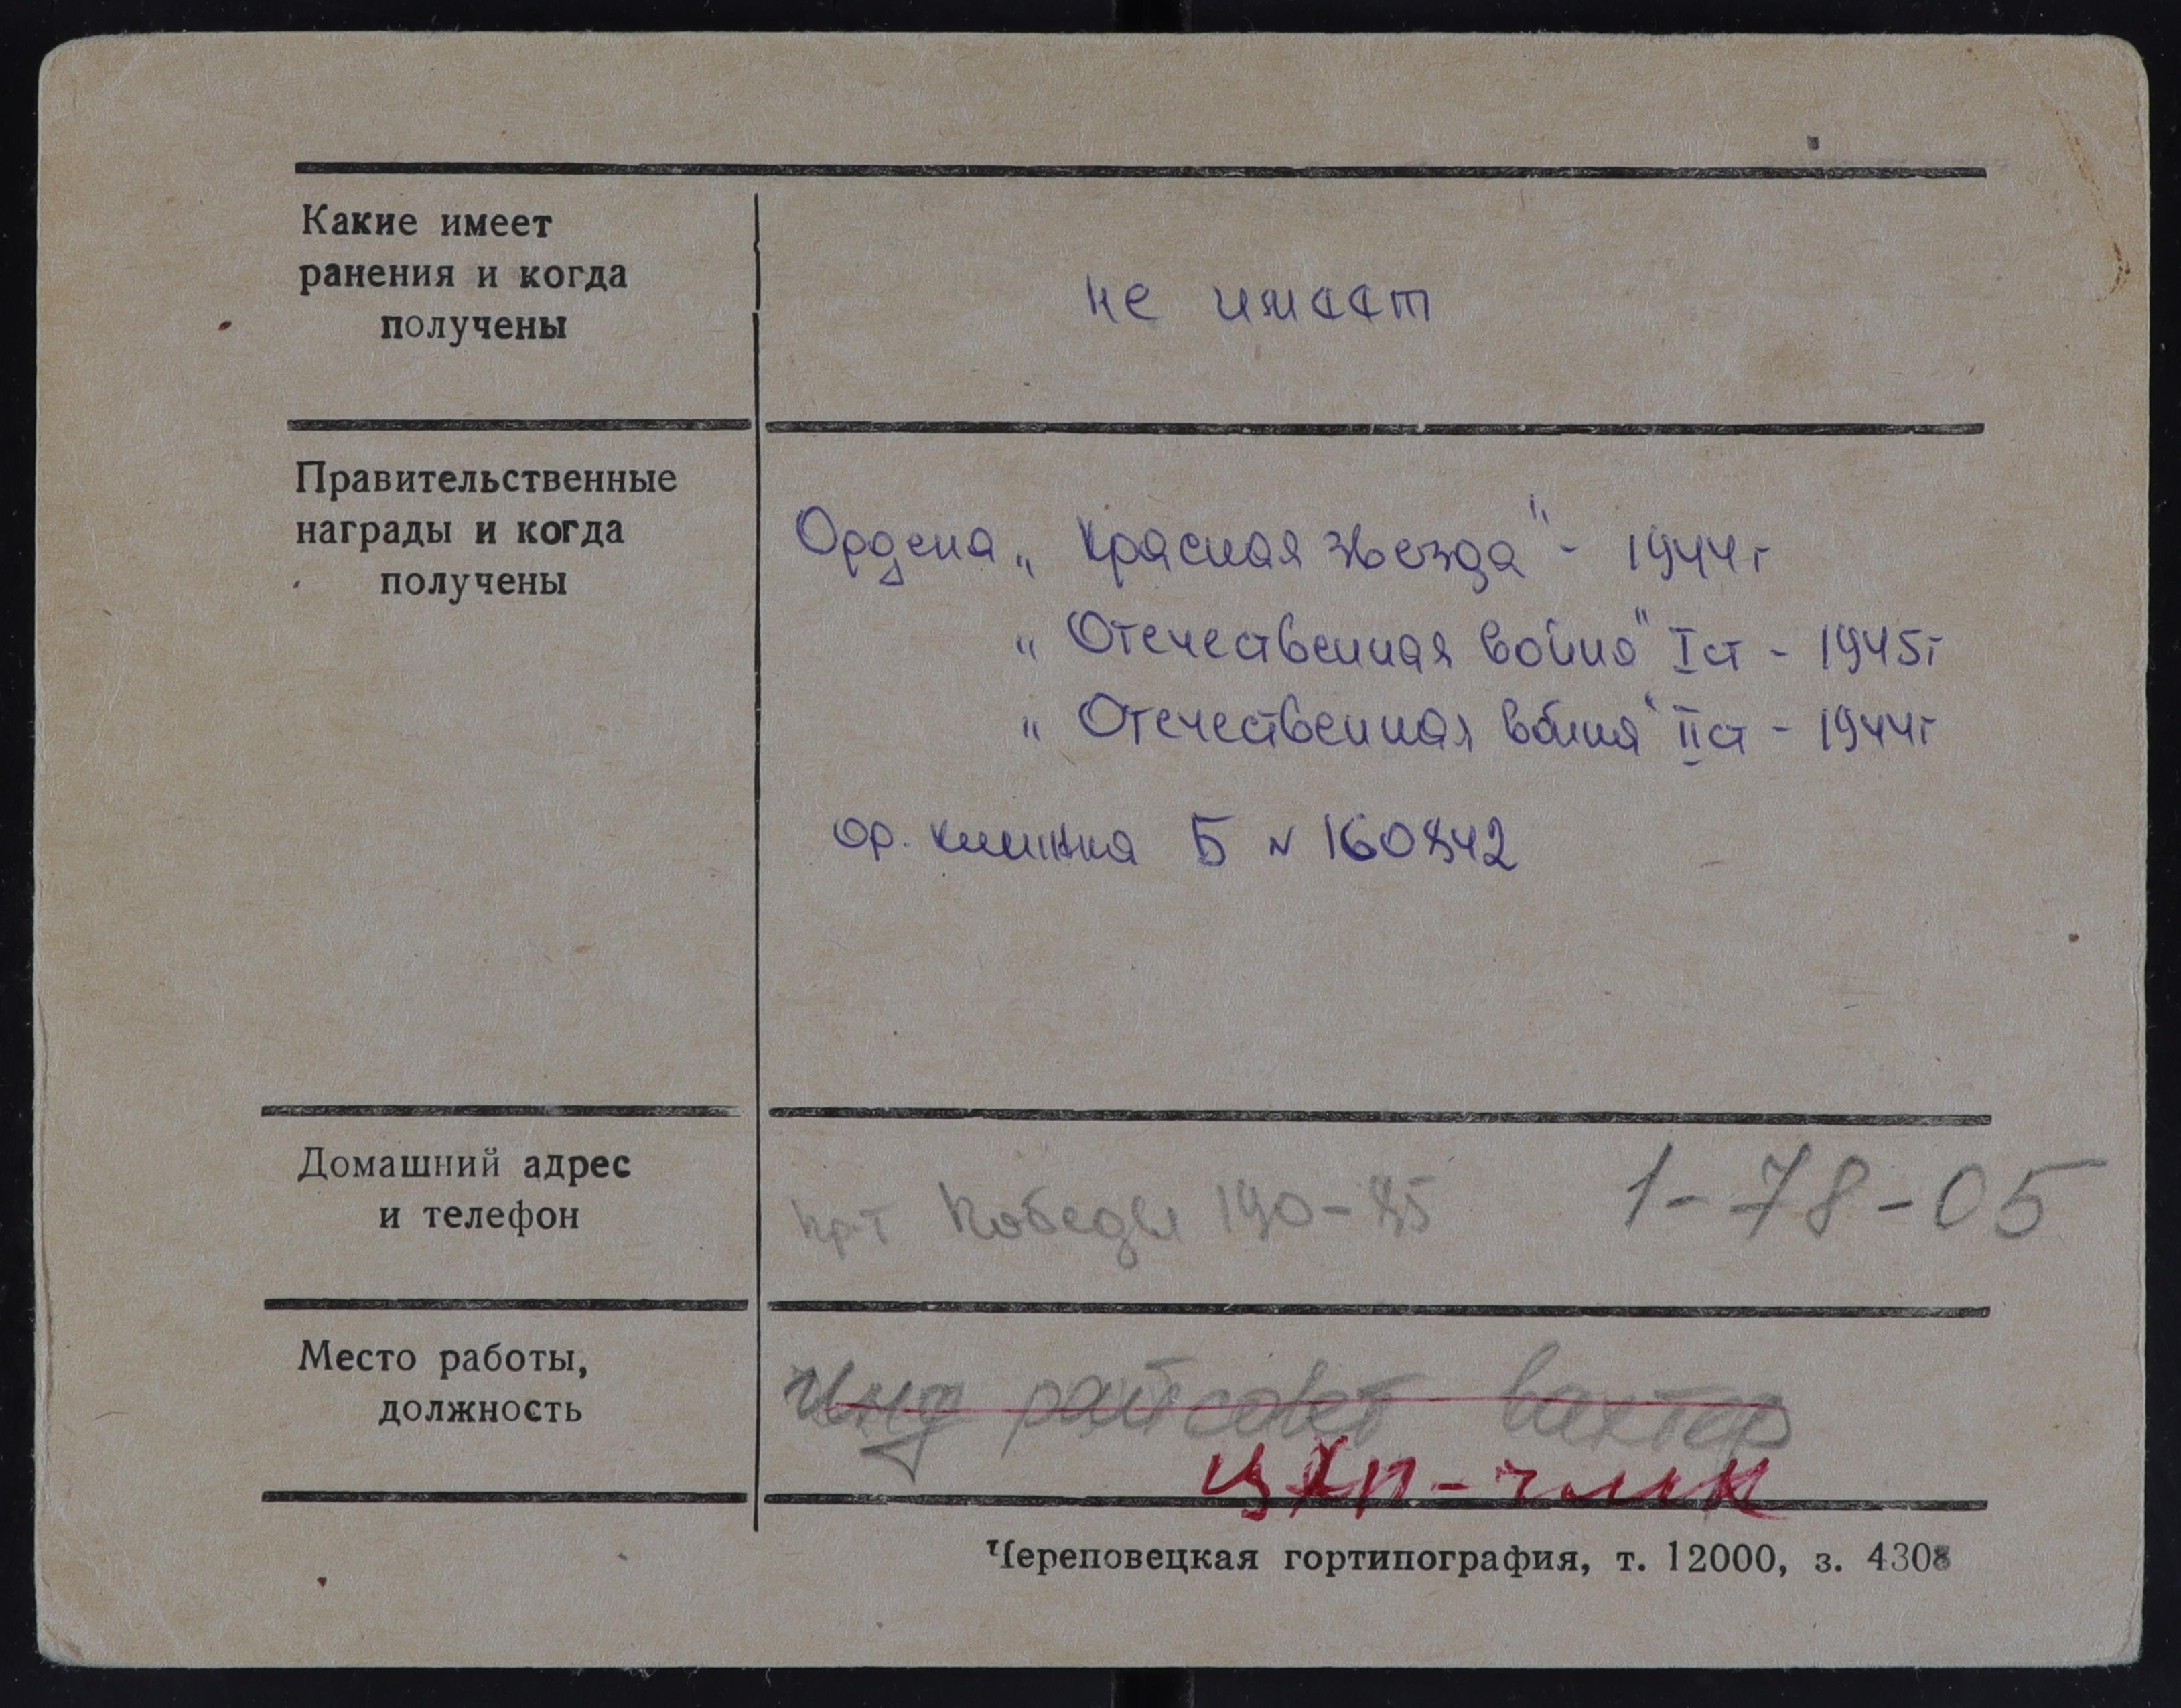 Какие имеет
ранения и когда
получены
не имеет
Правительственные
награды и когда
получены
Ордена „ Красная звезда" - 1944г
„ Отечественная война" I ст - 1945г
„ Отечественная война" II ст - 1944г
ор. книжка Б № 160842
Домашний адрес
и телефон
пр-т Победы 190-85 1-78-05
Место работы,
должность
Инд райсовет вахтер
ЦХП-ЧМК
Череповецкая гортипография, т. 12000, з. 4308